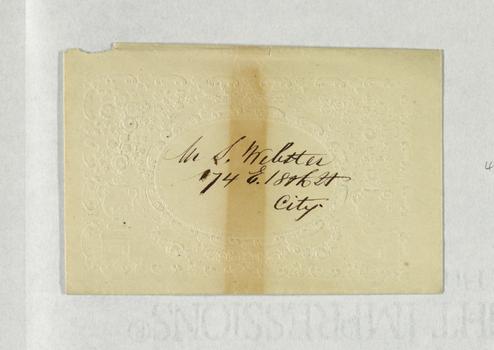 M S. Webster
74 E. 18th St
City
4
HT IMPRESSIONS®